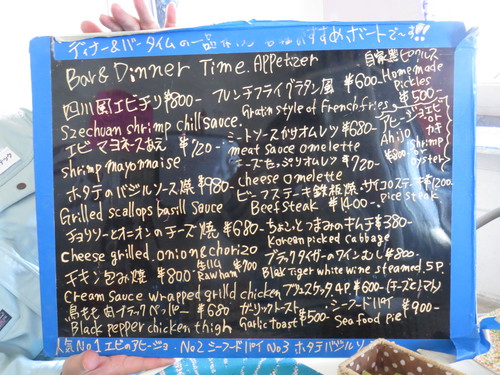 ディナー&バータイムの一品 おすすめボードで〜す!!
Bar & Dinner Time. Appetizer
四川風エビチリ ¥800-
Szechuan shrimp chill sauce.
エビマヨネーズあえ ¥720-
shrimp mayonnaise
ホタテのバジルソース焼 ¥980-
Grilled scallops basill sauce
チョリソーとオニオンのチーズ焼 ¥680-
Cheese grilled.onion & chorizo
チキン包み焼 ¥800-
Cream sauce wrapped grilld chicken
鳥もも肉ブラックペッパー ¥680
Black pepper chicken thigh
フレンチフライグラタン風 ¥600-
Gratin style of French fries
ミートソースがけオムレツ ¥680-
meat sauce omelette
チーズたっぷりオムレツ ¥720-
cheese omelette
ビーフステーキ鉄板焼
Beef steak ¥1400-
サイコロステーキ ¥1200-
Dice steak
ちょこっとつまみのキムチ ¥380-
Korean picked cabbage
生ハム ¥700
Raw ham
ブラックタイガーのワインむし ¥800-
Blak Tiger white wine steamed.5P.
ブルスケッタ4P ¥600-(チーズとトマト)
ガーリックトースト
Garlic toast ¥500-
シーフードパイ ¥900-
Sea food pie
自家製ピクルス
Homemade
Pickles
¥500-
アヒージョ エビ
or
カキ
Ahijo shrimp
¥800- or
oyster
人気No1エビのアヒージョ. No2シーフードパイ No3ホタテバジル